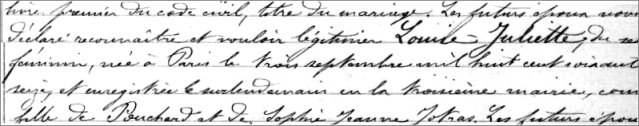 livre premier du code civil, titre du mariage. Les futurs époux nous
déclaré reconnaître et vouloir légitimer Louise Juliette, du se
féminin, née à Paris le trois septembre mil huit cent soixant
seize, et enregistrée le surlendemain en la troisième mairie, com
fille de Bouchard et de Sophie Jeanne Jotras. Les futurs épou